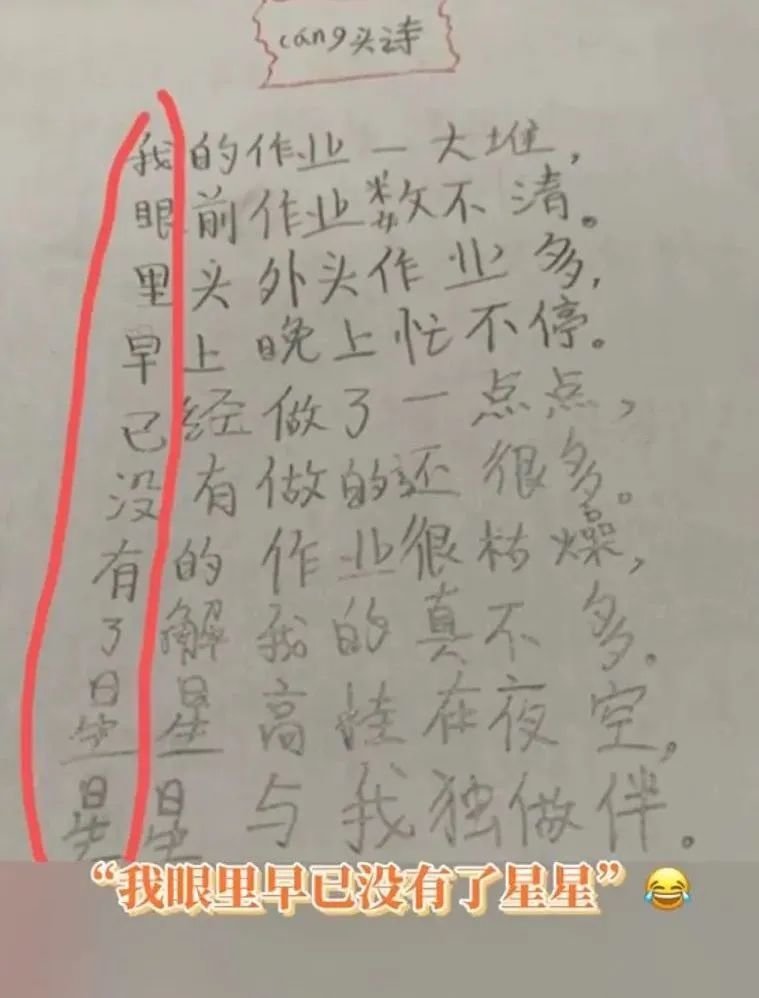 cáng头诗
我的作业一大堆，
眼前作业数不清。
里头外头作业多，
早上晚上忙不停。
已经做了一点点，
没有做的还很多。
有的作业很枯燥，
了解我的真不多。
星星高挂在夜空，
星星与我独做伴。
“我眼里早已没有了星星”😂